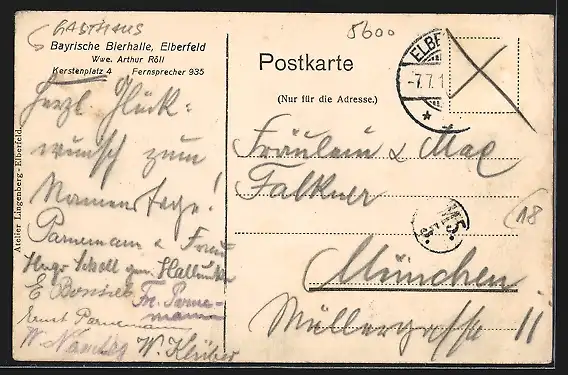 GASTHAUS
Bayrische Bierhalle, Elberfeld
Wwe. Arthur Röll
Kerstenplatz 4 Fernsprecher 935
Herzl. Glück-
wunsch zum
Namenstage!
Parnemann & Frau
E
Fr. Parne-
mann
Ernst Parnemann
W. W. Klüber
Atelier Lingenberg-Elberfeld.
5600
Postkarte
(Nur für die Adresse.)
ELBE
-7.7.1
Fräulein & Max
Falkner
5.
18
München
Müllergasse 11